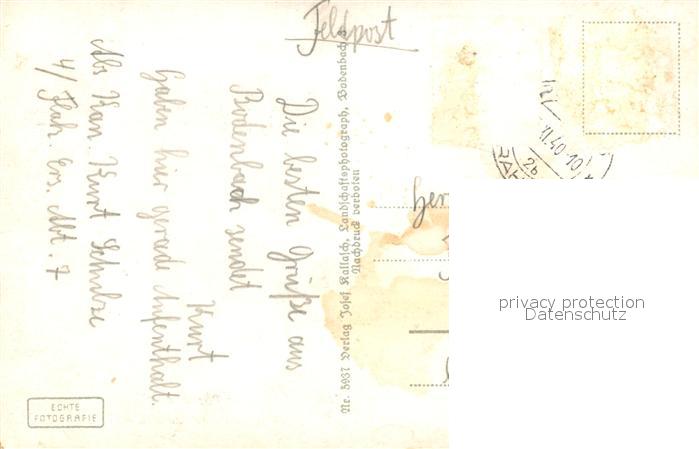 Feldpost
Die besten Grüße aus
Bodenbach sendet
Kurt
Haben hier grade Aufenthalt.
Abs. Kan. Kurt Schulze
4/ Flak. Ers. Abt. 7
Nr. 5937 Verlag Josef Kallasch, Landschaftsphotograph, Bodenbach
Nachdruck verboten
ECHTE
FOTOGRAFIE
Her
11.40-10
2b
privacy protection
Datenschutz